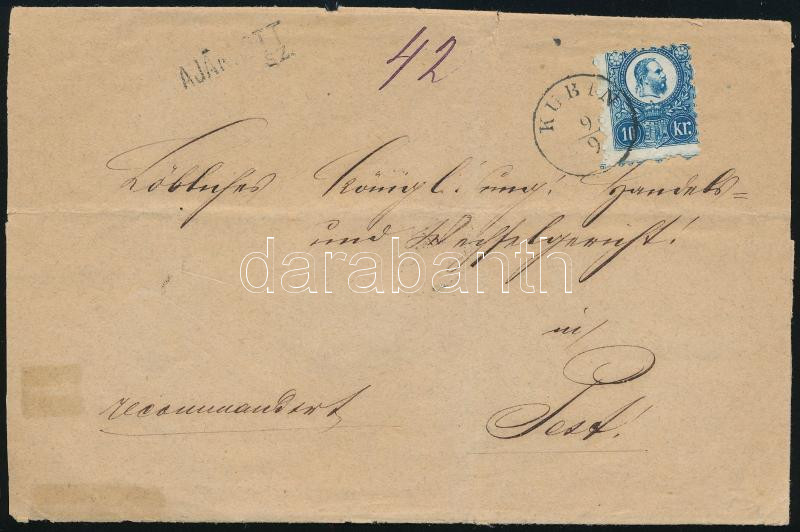 AJÁNLOTT
SZ.
42
KUBIN
9/9
10 kr.
Löbliches Königl. ung. Handels=
und Wechselgericht!
in
Pest!
recommandert
darabanth